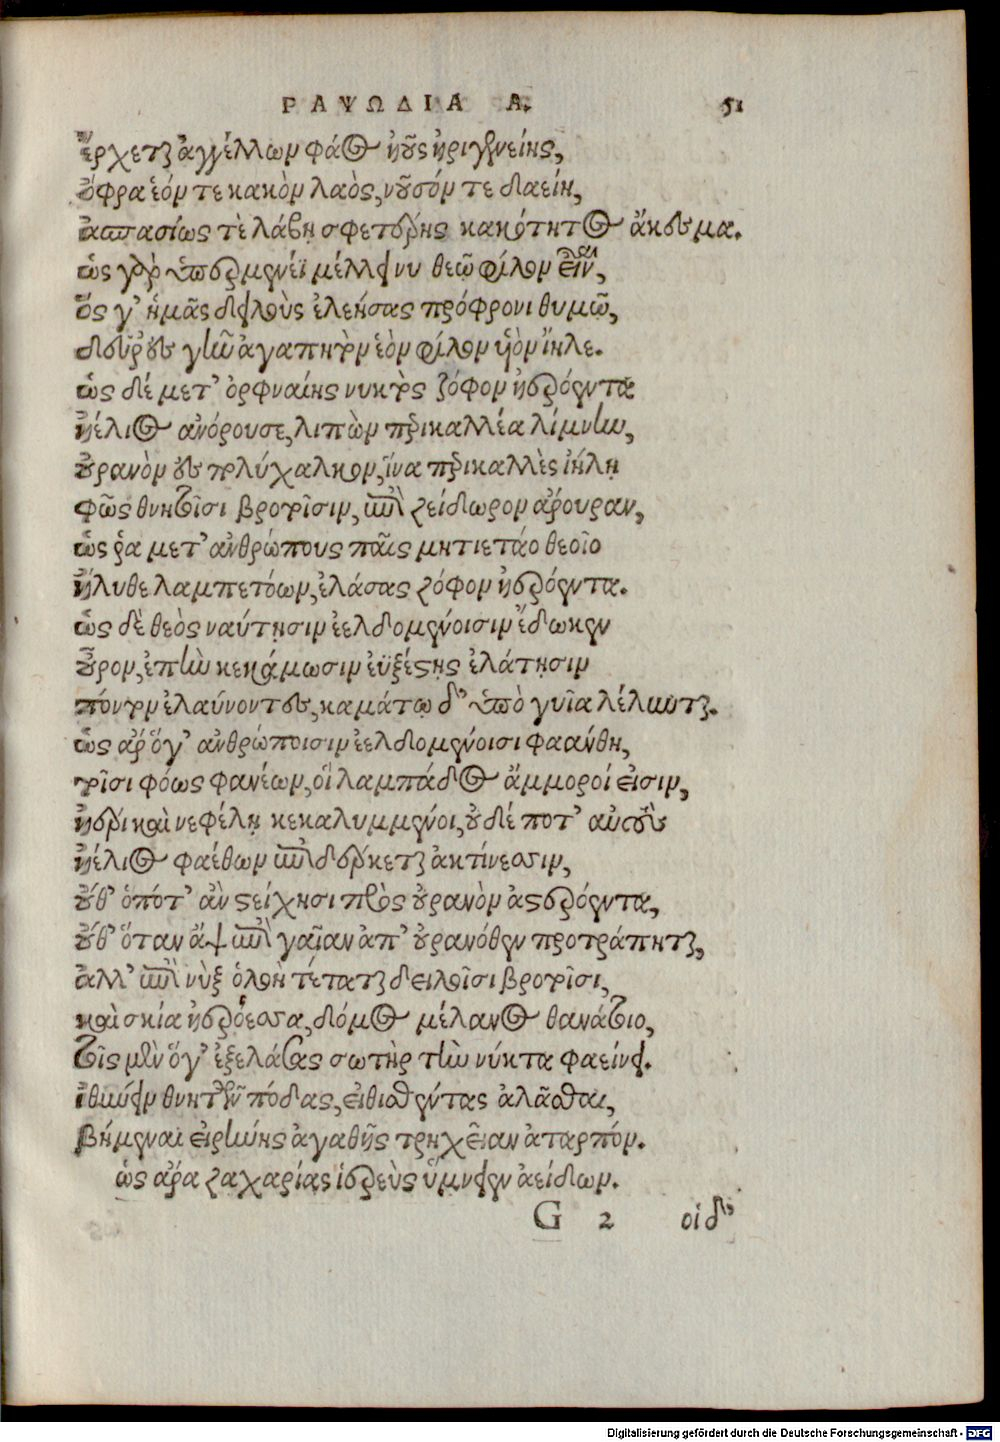 ΡΑΨΩΔΙΑ Α. 51
ἔρχεται ἀγγέλλων φάος ἠοῦς ἠριγενείης,
ὄφρα ἑόν τε κακὸν λαὸς, νοῦσόν τε δαείη,
ἀσπασίως τὲ λάβῃ σφετέρης κακότητος ἄκουσμα.
ὡς γὰρ ὑπερμενέϊ μέλλεν νυ θεῷ φίλον εἶναι,
ὅς γ' ἡμᾶς δειλοὺς ἐλεήσας πρόφρονι θυμῷ,
δεῦρο γῆν ἀγαπητὸν ἑὸν φίλον υἱὸν ἴηλε.
ὡς δέ μετ' ὀρφναίης νυκτὸς ζόφον ἠερόεντα
ἠέλιος ἀνόρουσε, λιπὼν περικαλλέα λίμνην,
οὐρανὸν ἐς πολύχαλκον, ἵνα περικαλλὲς ἰήλῃ
φῶς θνητοῖσι βροτοῖσιν, ἐπὶ ζείδωρον ἄρουραν,
ὡς ῥα μετ' ἀνθρώπους παῖς μητιετάο θεοῖο
ἤλυθε λαμπετόων, ἐλάσας ζόφον ἠερόεντα.
ὡς δὲ θεὸς ναύτῃσιν ἐελδομένοισιν ἔδωκεν
οὖρον, ἐπὴν κεκάμωσιν ἐϋξέστῃς ἐλάτῃσιν
πόντον ἐλαύνοντες, καμάτῳ δ' ὑπὸ γυῖα λέλυνται.
ὡς ἄρ ὅγ' ἀνθρώποισιν ἐελδομένοισι φαάνθη,
τοῖσι φόως φανέων, οἳ λαμπάδος ἄμμοροί εἰσιν,
ἠέρι καὶ νεφέλῃ κεκαλυμμένοι, οὐδέ ποτ' αὐτοὺς
ἠέλιος φαέθων ἐπιδέρκεται ἀκτίνεσσιν,
οὔθ' ὁπότ' ἂν στείχησι πρὸς οὐρανὸν ἀστερόεντα,
οὔθ' ὅταν ἂψ ἐπὶ γαῖαν ἀπ' οὐρανόθεν προτράπηται,
ἀλλ' ἐπὶ νὺξ ὀλοὴ τέταται δειλοῖσι βροτοῖσι,
καὶ σκία ἠερόεσσα, δόμος μέλανος θανάτοιο,
τοῖς μὲν ὅγ' ἐξελάσας σωτὴρ τὴν νύκτα φαείνει.
ἰθύνειν θνητῶν πόδας, εἰθισθέντας ἀλᾶσθαι,
βήμεναι εἰρήνης ἀγαθῆς τρηχεῖαν ἀταρπόν.
ὡς ἄρα ζαχαρίας ἱερεὺς ὕμνεεν ἀείδων.
G 2 οἱ δ'
Digitalisierung gefördert durch die Deutsche Forschungsgemeinschaft - DFG